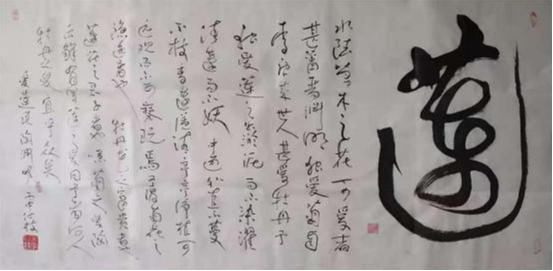 蓮
水陸草木之花可愛者
甚蕃晋陶淵明獨愛菊自
李唐来世人甚愛牡丹予
獨愛蓮之出淤泥而不染濯
清漣而不妖中通外直不蔓
不枝香遠益清亭亭净植可
遠觀而不可褻玩焉予謂菊花之
隱逸者也牡丹花之富貴者
蓮花之君子者噫菊之愛陶
後鮮有聞蓮之愛同予者何人
牡丹之愛宜乎衆矣
愛蓮説